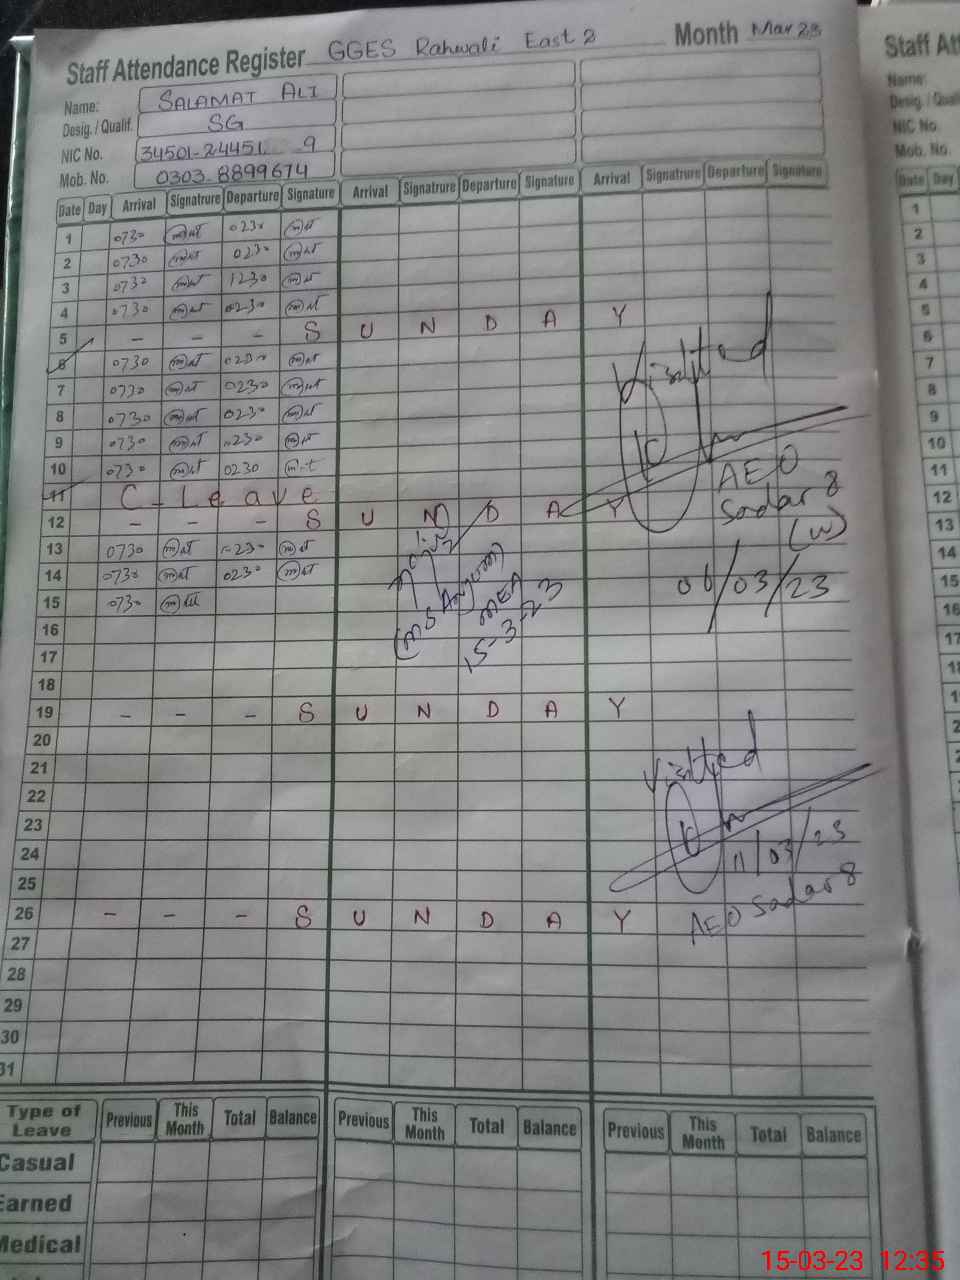 Staff Attendance Register GGES Rahwali East 2 Month Mar 23
Name: SALAMAT ALI
Desig. / Qualif. SG
NIC No. 34501-24451 9
Mob. No. 0303-8899674
Date Day Arrival Signatrure Departure Signature Arrival Signatrure Departure Signature Arrival Signatrure Departure Signature
1 0730 0230
2 0730 0230
3 0730 1230
4 0730 0230
5 - - - S U N D A Y
6 0730 0230
7 0730 0230
8 0730 0230
9 0730 0230
10 0730 0230
11 C - Leave
12 - - - S U N D A Y
13 0730 0230
14 0730 0230
15 0730
16
17
18
19 - - - S U N D A Y
20
21
22
23
24
25
26 - - - S U N D A Y
27
28
29
30
31
Visited
AEO
Sadar 8
(W)
06/03/23
(MS Anjum)
MEA
15-3-23
Visited
11/03/23
AEO Sadar 8
Type of Leave Previous This Month Total Balance Previous This Month Total Balance Previous This Month Total Balance
Casual
Earned
Medical
Staff Att
Name:
Desig. / Quali
NIC No.
Mob. No.
Date Day
1
2
3
4
5
6
7
8
9
10
11
12
13
14
15
16
17
18
15-03-23 12:35